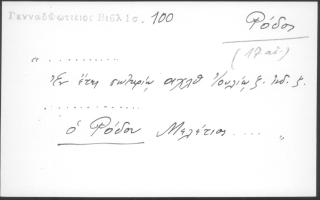 Γενναδίωτειος Βιβλ ις. 100
Ρόδος
(17 αἰ.)
"..........
Ἐν ἔτη σωτηρίῳ αχλθ Ἰουλίῳ ζ. ἰνδ. ζ.
..........
ὁ Ρόδου Μελέτιος .... "